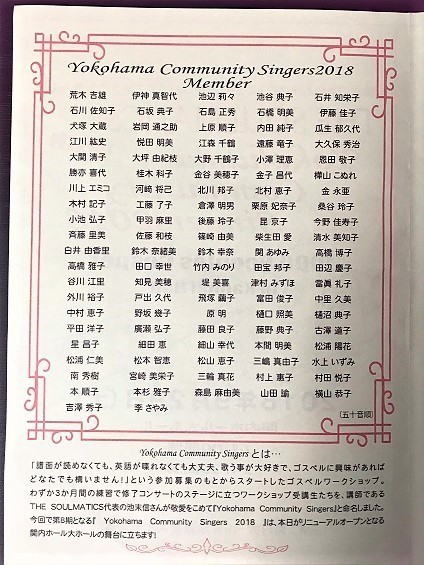 Yokohama Community Singers2018
Member
荒木 吉雄 伊神 真智代 池辺 莉々 池谷 典子 石井 知栄子
石川 佐知子 石坂 典子 石島 正秀 石橋 明美 伊藤 佳子
犬塚 大蔵 岩岡 通之助 上原 順子 内田 純子 瓜生 郁久代
江川 紘史 悦田 明美 江森 千鶴 遠藤 竜子 大久保 秀治
大関 清子 大坪 由紀枝 大野 千鶴子 小澤 理恵 恩田 敬子
勝亦 喜代 桂木 科子 金谷 美穂子 金子 昌代 樺山 こぬれ
川上 エミコ 河﨑 将己 北川 邦子 北村 恵子 金 永亜
木村 記子 工藤 了子 倉澤 明男 栗原 妃奈子 桑谷 玲子
小池 弘子 甲羽 麻里 後藤 玲子 昆 京子 今野 佳寿子
斉藤 里美 佐藤 和枝 篠崎 由美 柴生田 愛 清水 美知子
白井 由香里 鈴木 奈緒美 鈴木 幸奈 関 あゆみ 高橋 博子
高橋 雅子 田口 幸世 竹内 みのり 田宝 邦子 田辺 慶子
谷川 江里 知見 美穂 堤 美喜 津村 みずほ 富眞 礼子
外川 裕子 戸出 久代 飛塚 繭子 富田 俊子 中里 久美
中村 恵子 野坂 幾子 原 明 樋口 照美 樋沼 典子
平田 洋子 廣瀬 弘子 藤田 良子 藤野 典子 古澤 道子
星 昌子 細田 恵 細山 幸代 本間 明美 松浦 陽花
松浦 仁美 松本 智恵 松山 恵子 三嶋 真由子 水上 いずみ
南 秀樹 宮崎 美栄子 三輪 真花 村上 惠子 村田 悦子
本 順子 本杉 雅子 森島 麻由美 山田 諭 横山 恭子
吉澤 秀子 李 さやみ
(五十音順)
Yokohama Community Singers とは…
「譜面が読めなくても、英語が喋れなくても大丈夫、歌う事が大好きで、ゴスペルに興味があれば
どなたでも構いません!」という参加募集のもとからスタートしたゴスペルワークショップ。
わずか3か月間の練習で修了コンサートのステージに立つワークショップ受講生たちを、講師である
THE SOULMATICS代表の池末信さんが敬愛をこめて『Yokohama Community Singers』と命名しました。
今回で第8期となる『 Yokohama Community Singers 2018 』は、本日がリニューアルオープンとなる
関内ホール大ホールの舞台に立ちます!